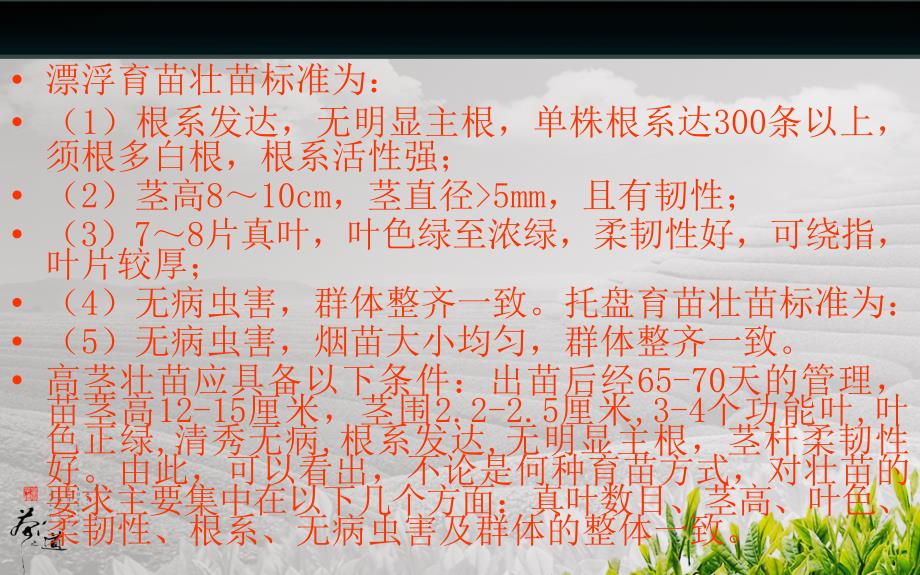 • 漂浮育苗壮苗标准为：
• （1）根系发达，无明显主根，单株根系达300条以上，
须根多白根，根系活性强；
• （2）茎高8～10cm，茎直径>5mm，且有韧性；
• （3）7～8片真叶，叶色绿至浓绿，柔韧性好，可绕指，
叶片较厚；
• （4）无病虫害，群体整齐一致。托盘育苗壮苗标准为：
• （5）无病虫害，烟苗大小均匀，群体整齐一致。
• 高茎壮苗应具备以下条件：出苗后经65-70天的管理，
苗茎高12-15厘米，茎围2.2-2.5厘米,3-4个功能叶,叶
色正绿,清秀无病,根系发达,无明显主根，茎杆柔韧性
好。由此，可以看出，不论是何种育苗方式，对壮苗的
要求主要集中在以下几个方面：真叶数目、茎高、叶色、
柔韧性、根系、无病虫害及群体的整体一致。
茶之道